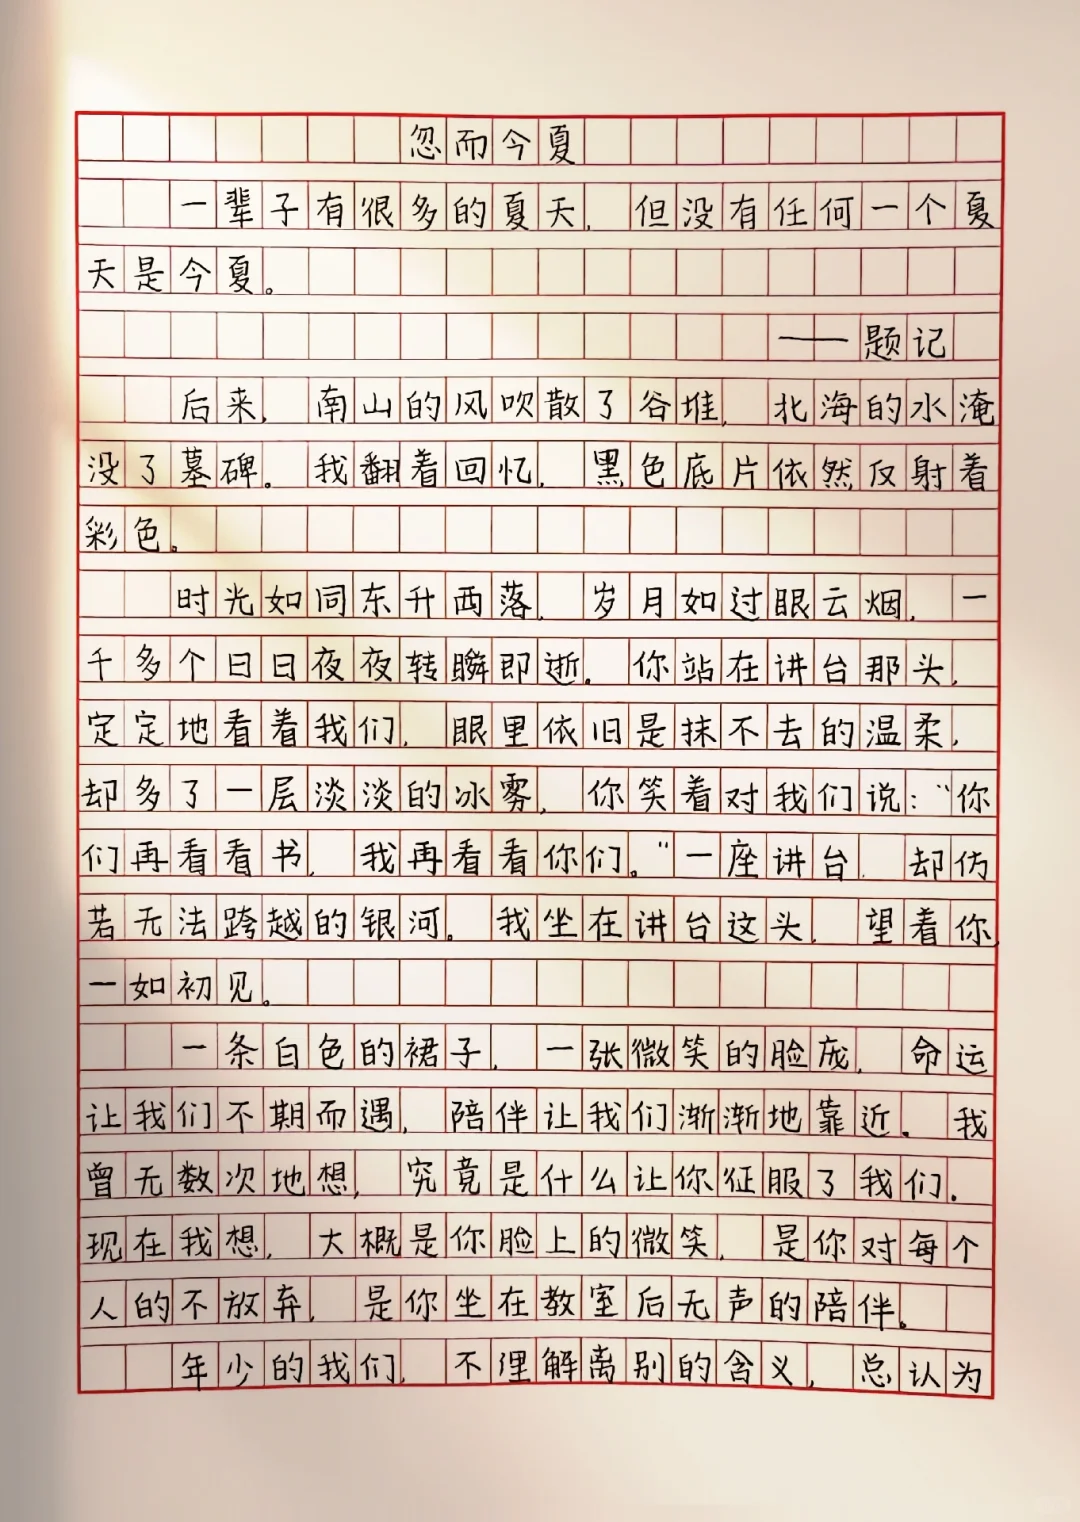 忽而今夏
一辈子有很多的夏天，但没有任何一个夏
天是今夏。
——题记
后来，南山的风吹散了谷堆，北海的水淹
没了墓碑。我翻着回忆，黑色底片依然反射着
彩色。
时光如同东升西落，岁月如过眼云烟，一
千多个日日夜夜转瞬即逝。你站在讲台那头，
定定地看着我们，眼里依旧是抹不去的温柔，
却多了一层淡淡的冰雾，你笑着对我们说：“你
们再看看书，我再看看你们。”一座讲台，却仿
若无法跨越的银河。我坐在讲台这头，望着你，
一如初见。
一条白色的裙子，一张微笑的脸庞，命运
让我们不期而遇，陪伴让我们渐渐地靠近。我
曾无数次地想，究竟是什么让你征服了我们。
现在我想，大概是你脸上的微笑，是你对每个
人的不放弃，是你坐在教室后无声的陪伴。
年少的我们，不理解离别的含义，总认为